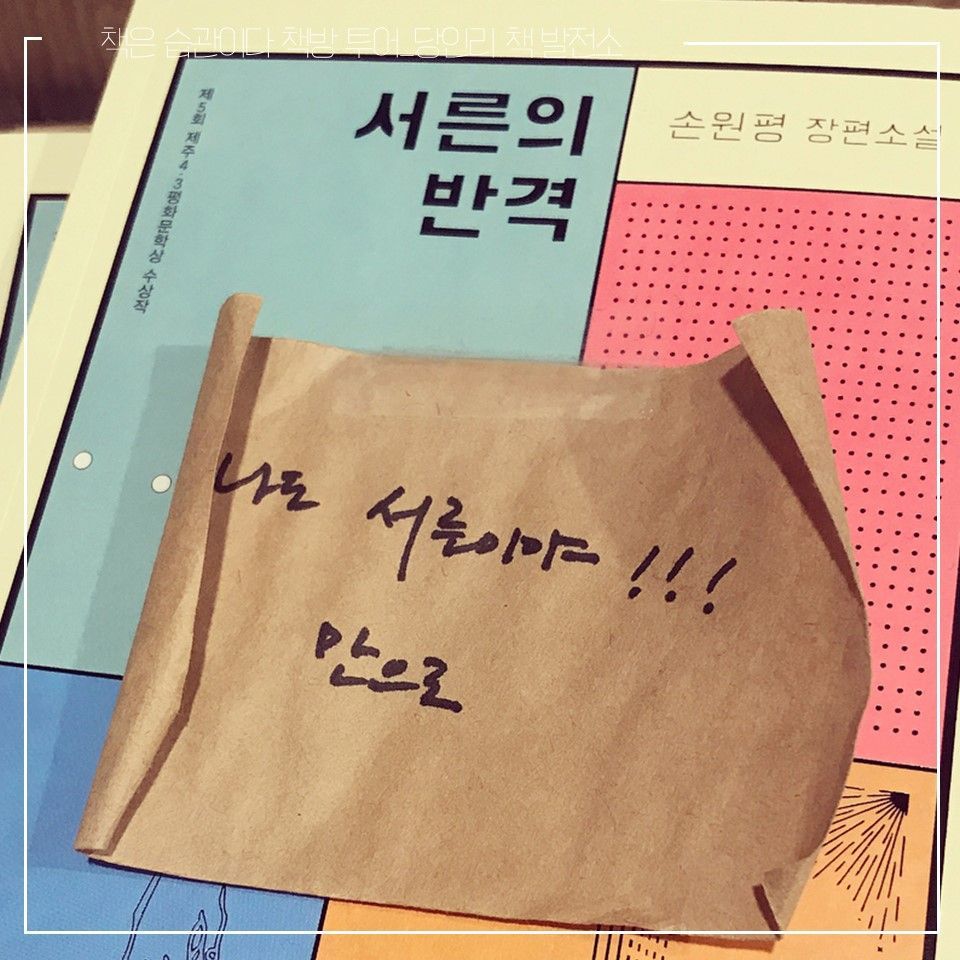 책은 습관이다 책방 투어_당인리 책 발전소
제5회 제주4·3평화문학상 수상작
서른의
반격
손원평 장편소설
나도 서른이야!!!
만으로